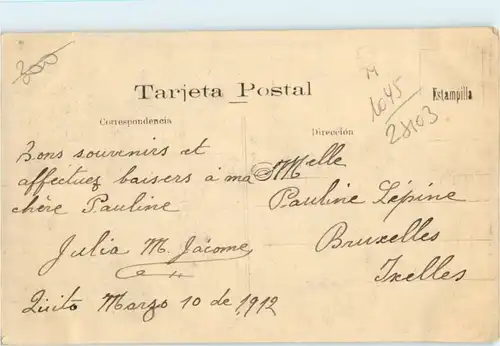 300
Tarjeta Postal
M
1045
28103
Estampilla
Correspondencia
Dirección
Bons souvenirs et
affectuez baisers à ma
chère Pauline
Julia M. Jácome
Quito Marzo 10 de 1912
Melle
Pauline Lépine
Bruxelles
Ixelles